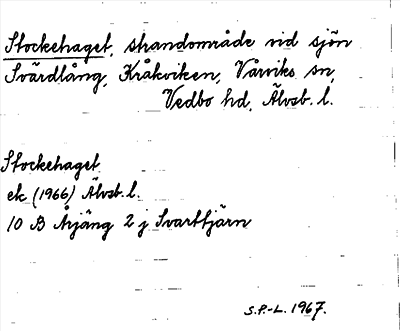 Stockehaget, strandområde vid sjön
Svärdlång, Kråkviken, Vårviks sn,
Vedbo hd, Älvsb. l.
Stockehaget
ek (1966) Älvsb. l.
10 B Årjäng 2 j Svarttjärn
S.P.-L. 1967.